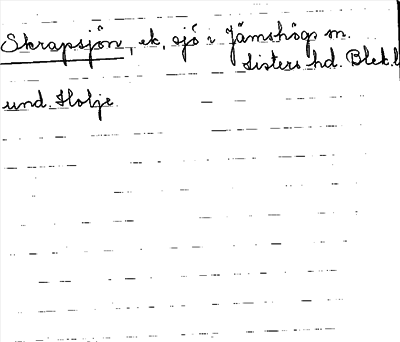 Skrapsjön, ek, sjö i Jämshögs m.
Listers hd. Blek. l
und. Holje